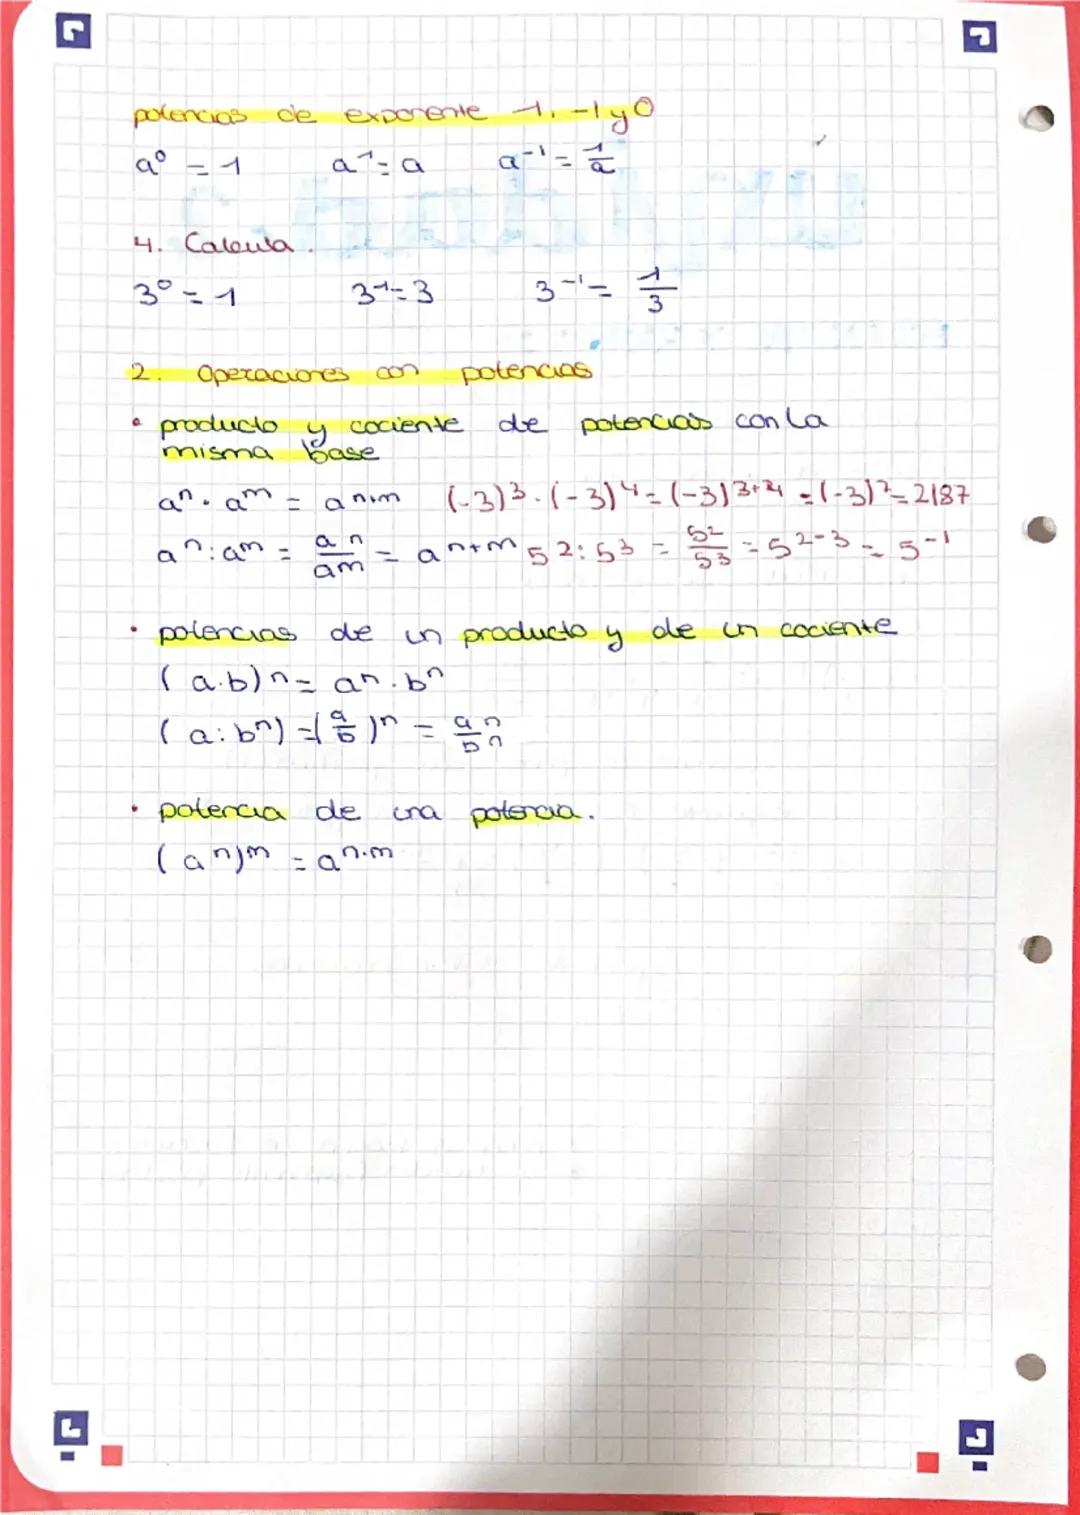 potencias de exponente 1, -1 y 0
a⁰ = 1 a¹ = a a⁻¹ = 1/a
4. Calcula.
3⁰ = 1 3¹ = 3 3⁻¹ = 1/3
2. Operaciones con potencias
• producto y cociente de potencias con la
misma base
aⁿ · aᵐ = aⁿ⁺ᵐ (-3)³ · (-3)⁴ = (-3)³⁺⁴ = (-3)⁷ = 2187
aⁿ : aᵐ = aⁿ/aᵐ = aⁿ⁺ᵐ 5² : 5³ = 5²/5³ = 5²⁻³ = 5⁻¹
• potencias de un producto y de un cociente
(a·b)ⁿ = aⁿ · bⁿ
(a : bⁿ) = (a/b)ⁿ = aⁿ/bⁿ
• potencia de una potencia.
(aⁿ)ᵐ = aⁿ·ᵐ